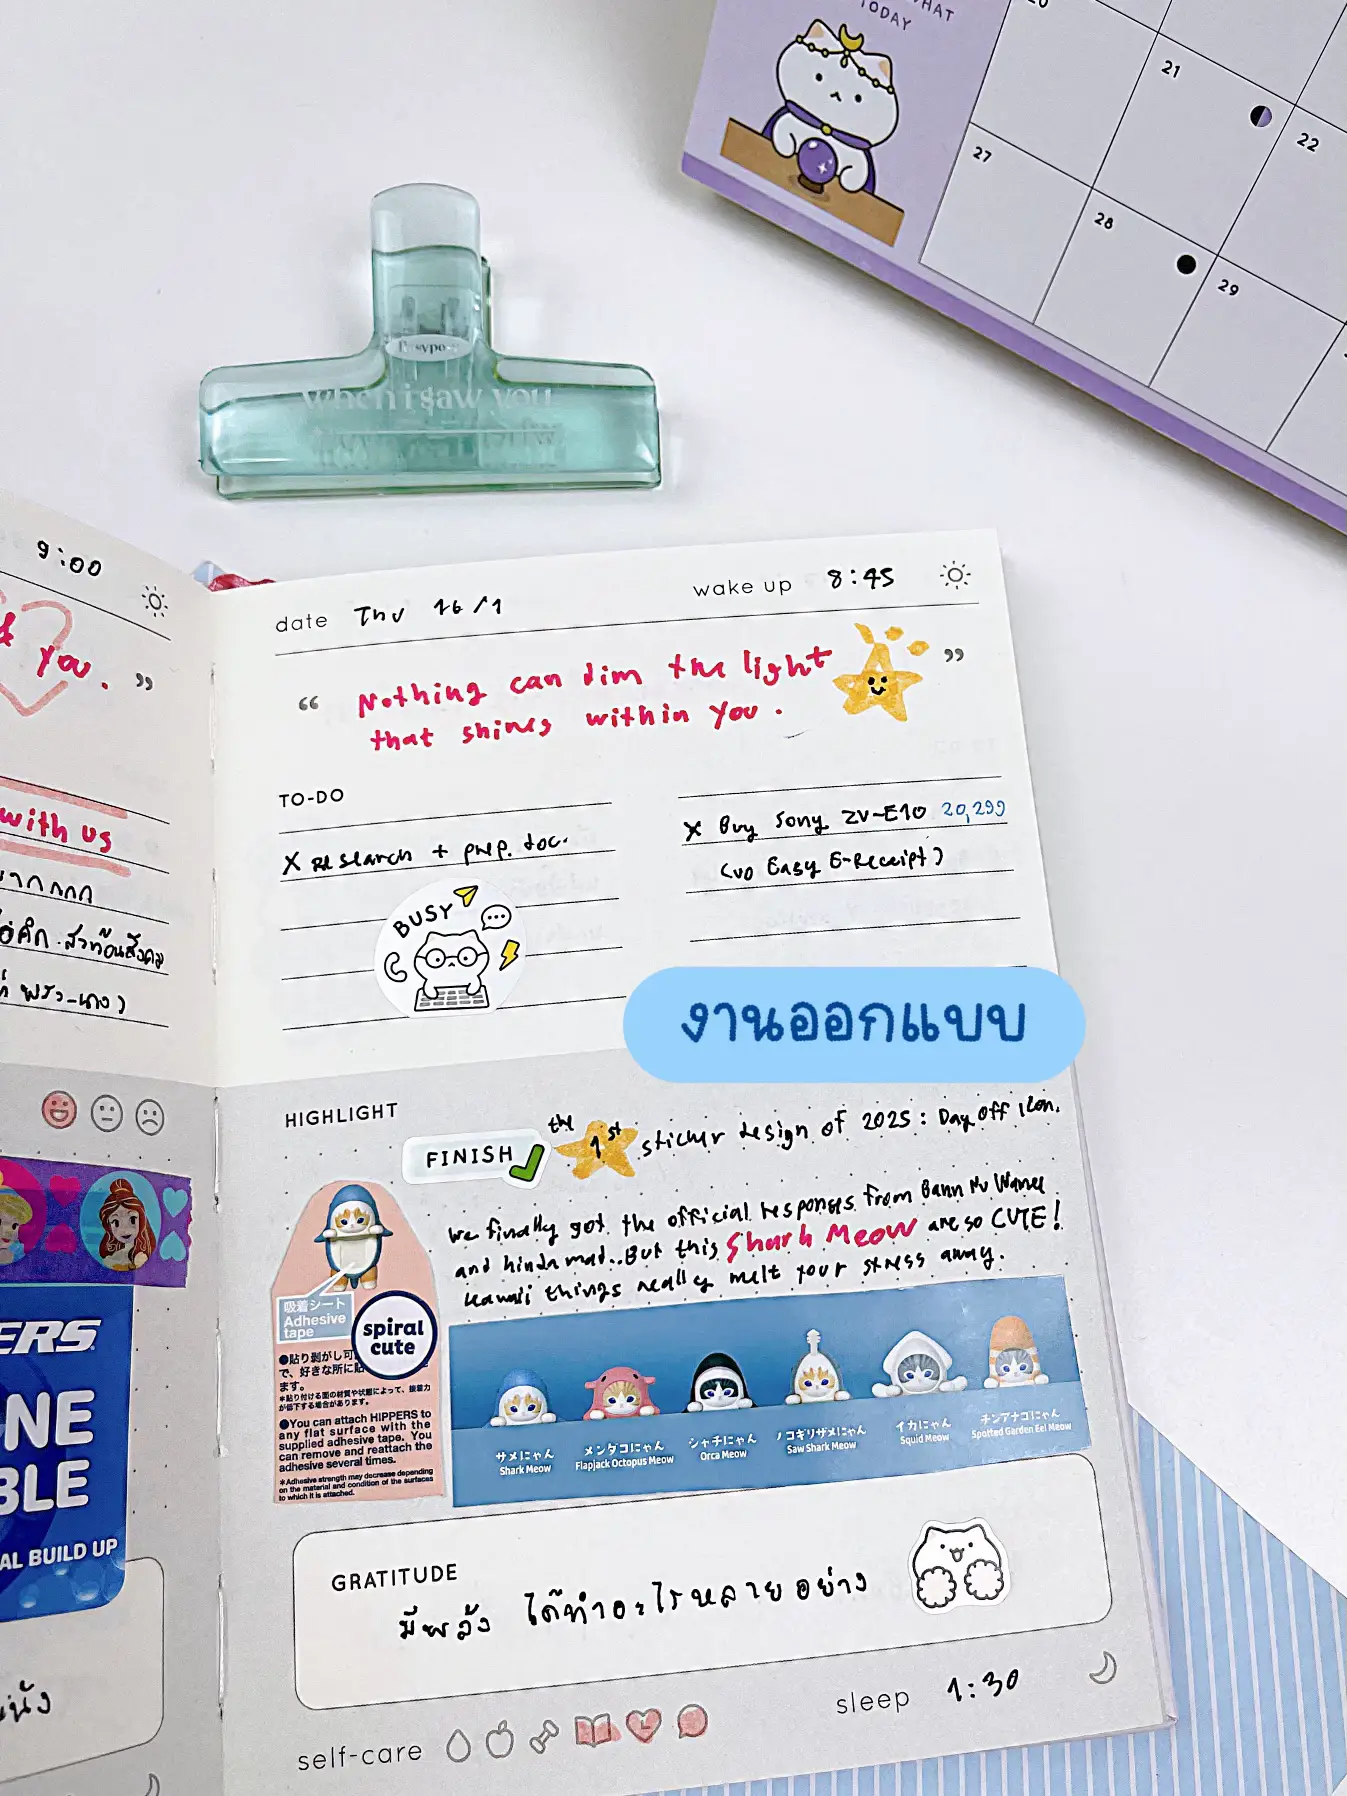 WHAT
TODAY
20
21
22
27
28
29
when i saw you
9:00
you. ”
with us
date Thu 16/1
wake up 8:45
“ Nothing can dim the light ”
that shines within you.
TO-DO
X research + prep. doc.
BUSY
X Buy Sony ZV-E10 20,299
(no Easy E-Receipt)
งานออกแบบ
HIGHLIGHT
FINISH the 1st sticker design of 2025: Day Off Icon.
We finally got the official responses from Bann
and kinda mad.. But this Shark Meow are so CUTE!
kawaii things really melt your stress away.
吸着シート
Adhesive
tape
spiral
cute
●貼り剥がし可
で、好きな所に貼
ます。
●You can attach HIPPERS to
any flat surface with the
supplied adhesive tape. You
can remove and reattach the
adhesive several times.
*Adhesive strength may decrease depending
on the material and condition of the surfaces
to which it is attached.
サメにゃん
Shark Meow
メンダコにゃん
Flapjack Octopus Meow
シャチにゃん
Orca Meow
ノコギリザメにゃん
Saw Shark Meow
イカにゃん
Squid Meow
チンアナゴにゃん
Spotted Garden Eel Meow
PERS
NE
BLE
AL BUILD UP
GRATITUDE
มีพลัง ได้ทำอะไรหลายอย่าง
sleep 1:30
self-care